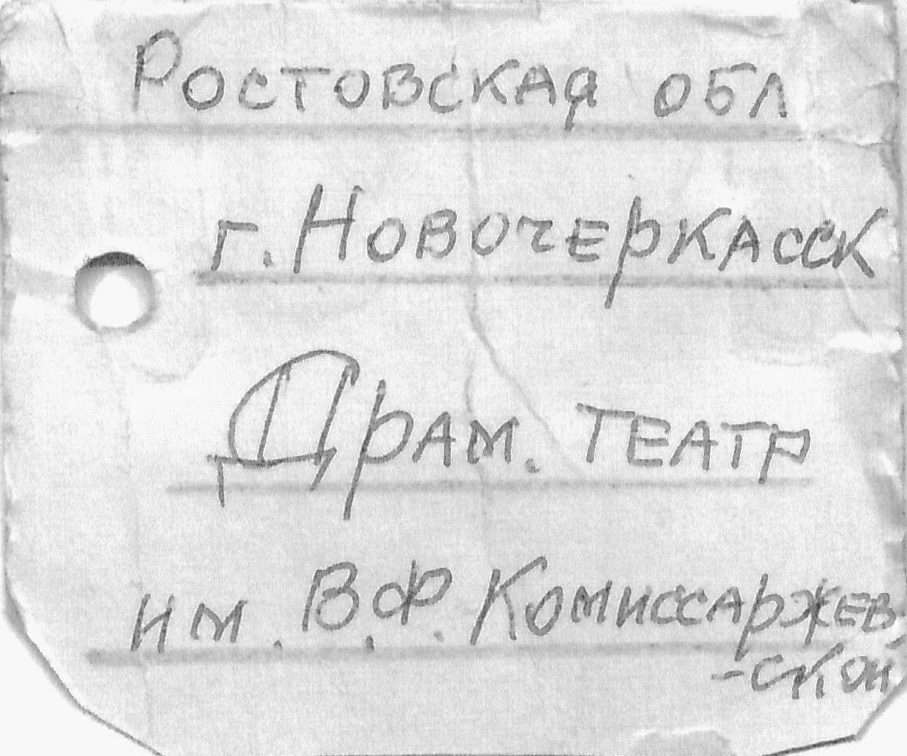 Ростовская обл
г. Новочеркасск
Драм. театр
им. В.Ф. Комиссаржев
-ской